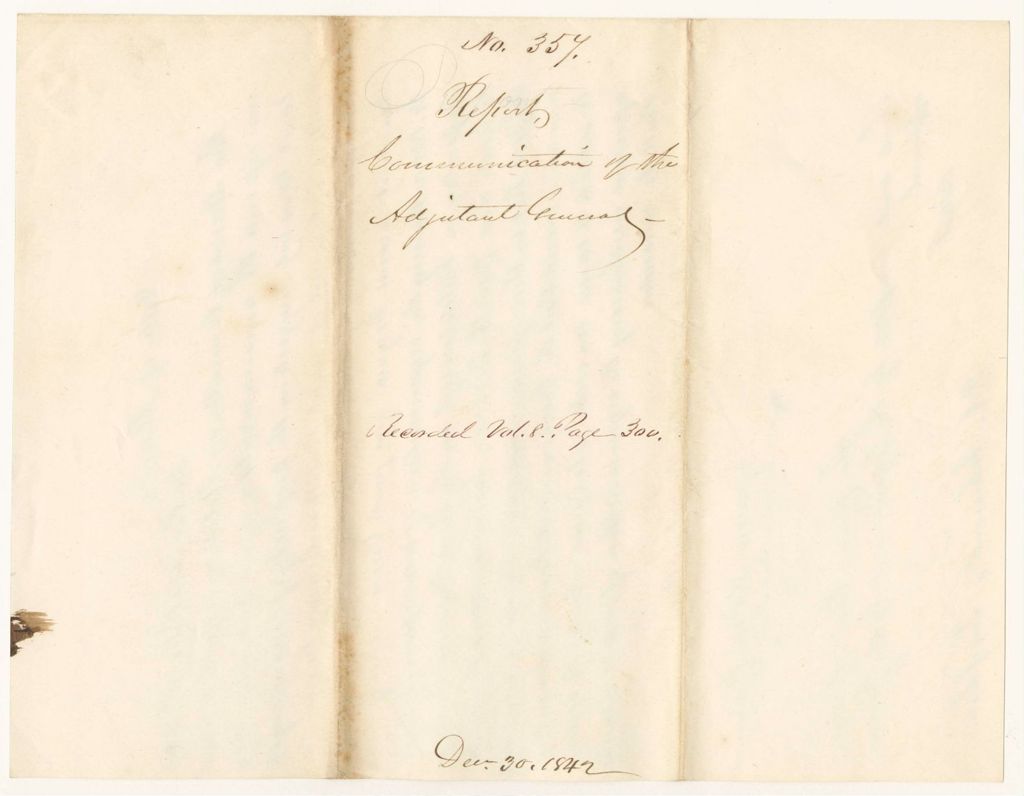 No. 357.
Report,
Communication of the
Adjutant General
Recorded Vol. 8. Page 300.
Dec. 30. 1842